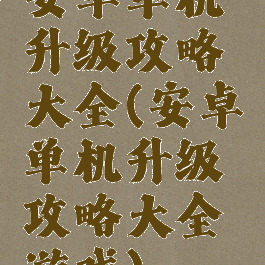 安卓单机
升级攻略
大全(安卓
单机升级
攻略大全
游戏)